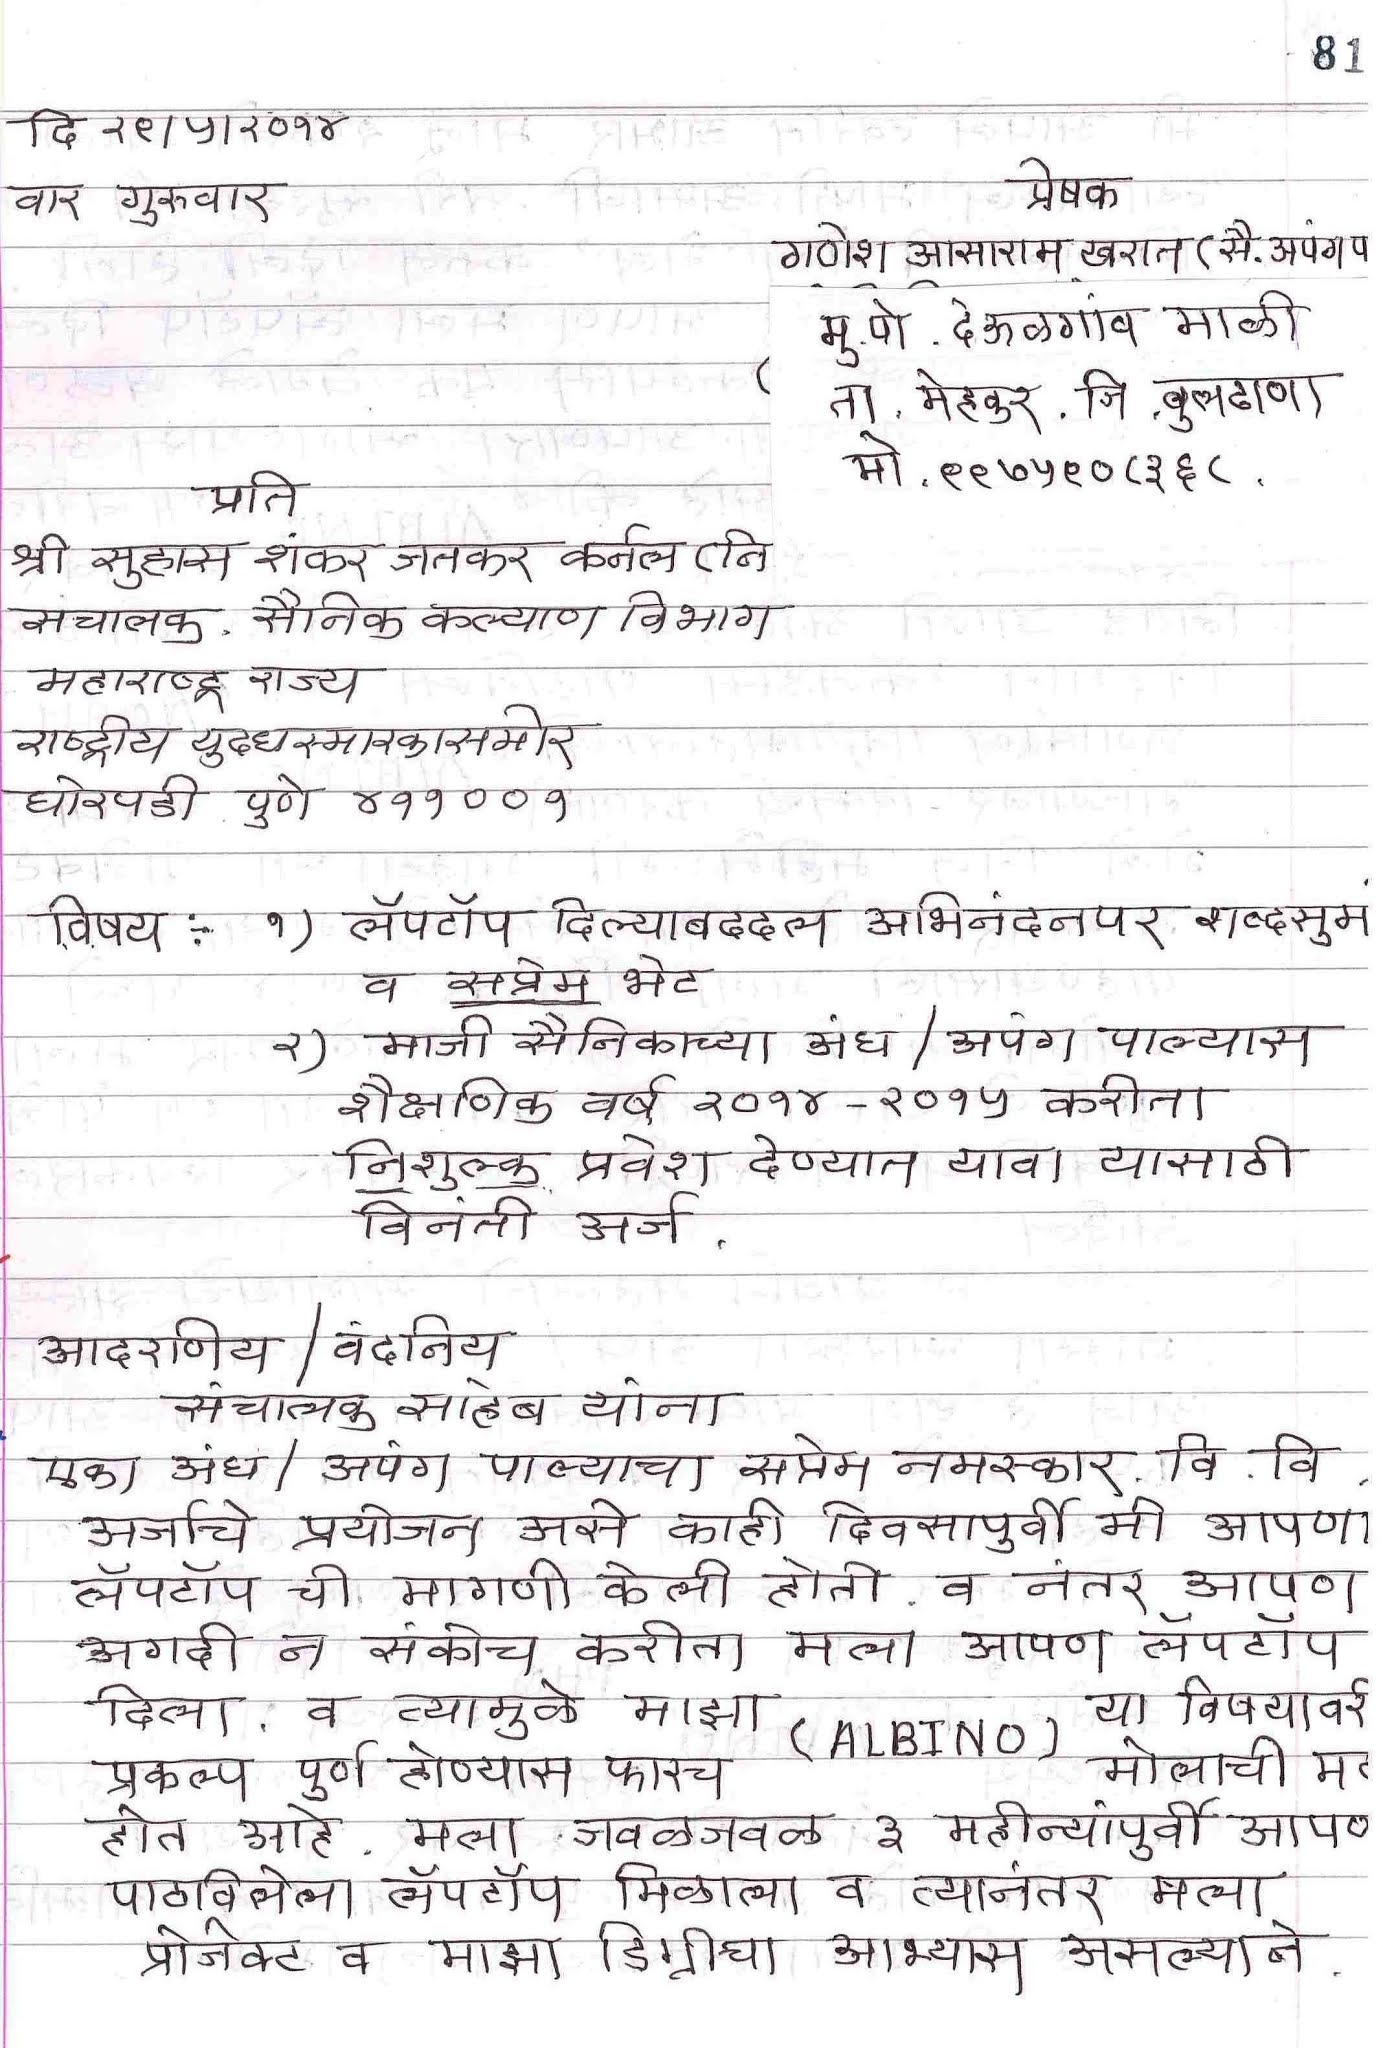 81
दि २९/५/२०१४
वार गुरुवार
प्रेषक
गणेश आसाराम खरात (सै. अपंग प
मु.पो. देऊळगांव माळी
ता. मेहकुर. जि. बुलढाणा
मो. ९९७५९०८३६८.
प्रति
श्री सुहास शंकर जतकर कर्नल (नि
संचालक. सैनिक कल्याण विभाग
महाराष्ट्र राज्य
राष्ट्रीय युदधस्मारकासमोर
घोरपडी पुणे ४११००१
विषय :- १) लॅपटॉप दिल्याबददल अभिनंदनपर शब्दसुमं
व सप्रेम भेट
२) माजी सैनिकाच्या अंध / अपंग पाल्यास
शैक्षणिक वर्ष २०१४-२०१५ करीता
निशुल्क प्रवेश देण्यात यावा यासाठी
विनंती अर्ज.
आदरणिय / वंदनिय
संचालक साहेब यांना
एका अंध / अपंग पाल्याचा सप्रेम नमस्कार. वि. वि.
अर्जाचे प्रयोजन असे काही दिवसापुर्वी मी आपणा
लॅपटॉप ची मागणी केली होती. व नंतर आपण
अगदी न संकोच करीता मला आपण लॅपटॉप
दिला. व त्यामुळे माझा (ALBINO) या विषयावर
प्रकल्प पुर्ण होण्यास फारच मोलाची मद
होत आहे. मला जवळजवळ ३ महीन्यांपुर्वी आपण
पाठविलेला लॅपटॉप मिळाला व त्यानंतर मला
प्रोजेक्ट व माझा डिग्रीचा आभ्यास असल्याने.